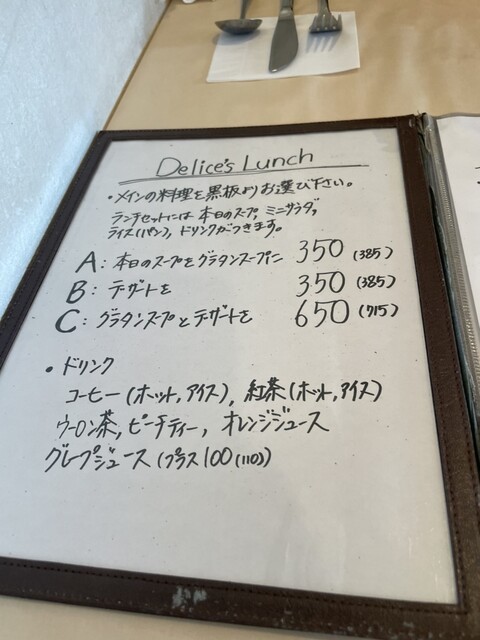 Delice's Lunch
・メインの料理を黒板よりお選び下さい。
ランチセットには本日のスープ, ミニサラダ,
ライス(パン), ドリンクがつきます。
A: 本日のスープをグラタンスープに 350 (385)
B: デザートを 350 (385)
C: グラタンスープとデザートを 650 (715)
・ドリンク
コーヒー(ホット,アイス), 紅茶(ホット,アイス)
ウーロン茶, ピーチティー, オレンジジュース
グレープジュース (プラス100(110))